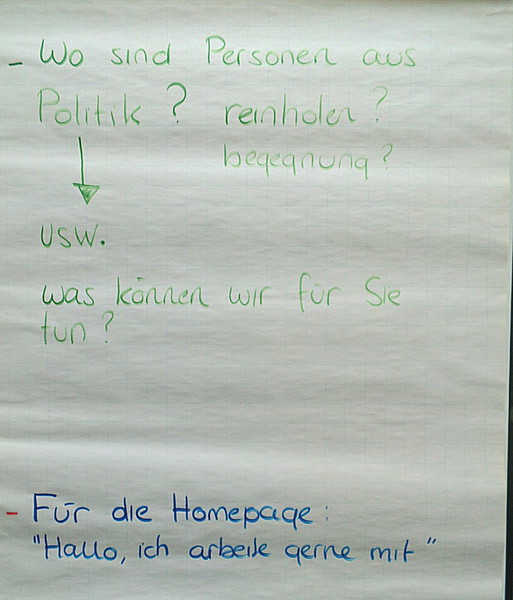 - Wo sind Personen aus
Politik? reinholen?
begegnung?
usw.
was können wir für Sie
tun?
- Für die Homepage:
"Hallo, ich arbeite gerne mit"